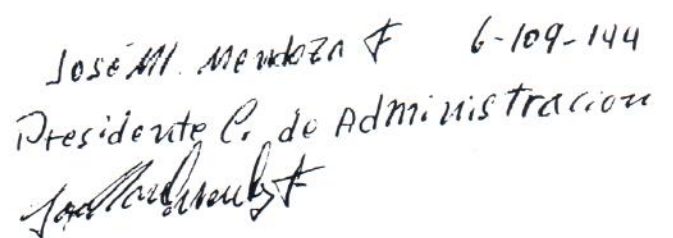 José M. Mendoza F 6-109-144
Presidente C. de Administracion